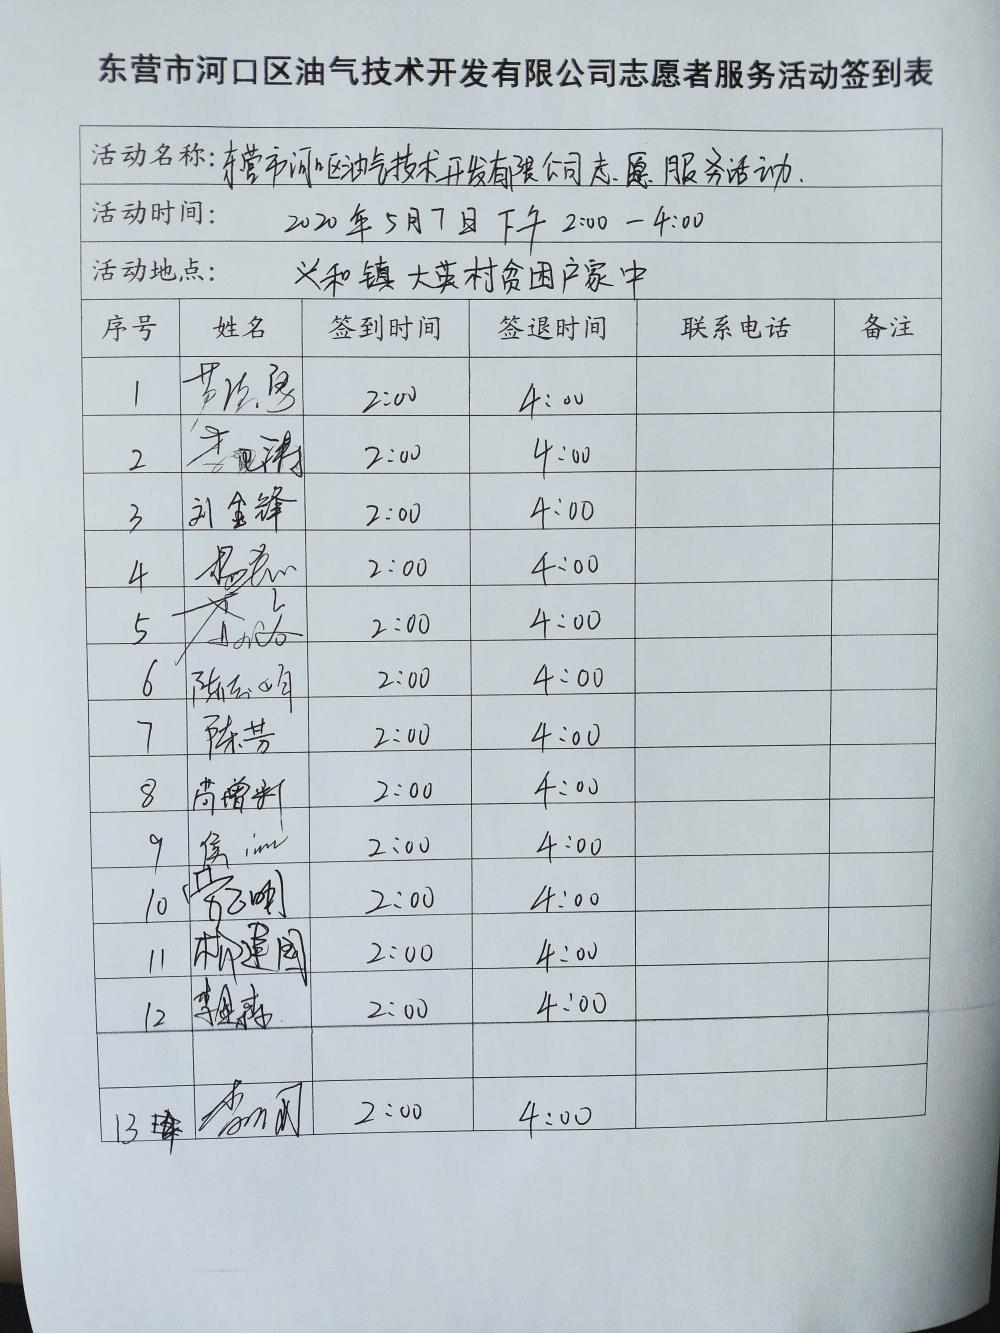 东营市河口区油气技术开发有限公司志愿者服务活动签到表
活动名称: 东营市河口区油气技术开发有限公司志愿服务活动.
活动时间: 2020年5月7日下午 2:00 — 4:00
活动地点: 义和镇大英村贫困户家中
序号 姓名 签到时间 签退时间 联系电话 备注
1 2:00 4:00
2 2:00 4:00
3 刘金锋 2:00 4:00
4 2:00 4:00
5 2:00 4:00
6 2:00 4:00
7 陈芳 2:00 4:00
8 2:00 4:00
9 侯 2:00 4:00
10 2:00 4:00
11 柳建国 2:00 4:00
12 2:00 4:00
13 2:00 4:00